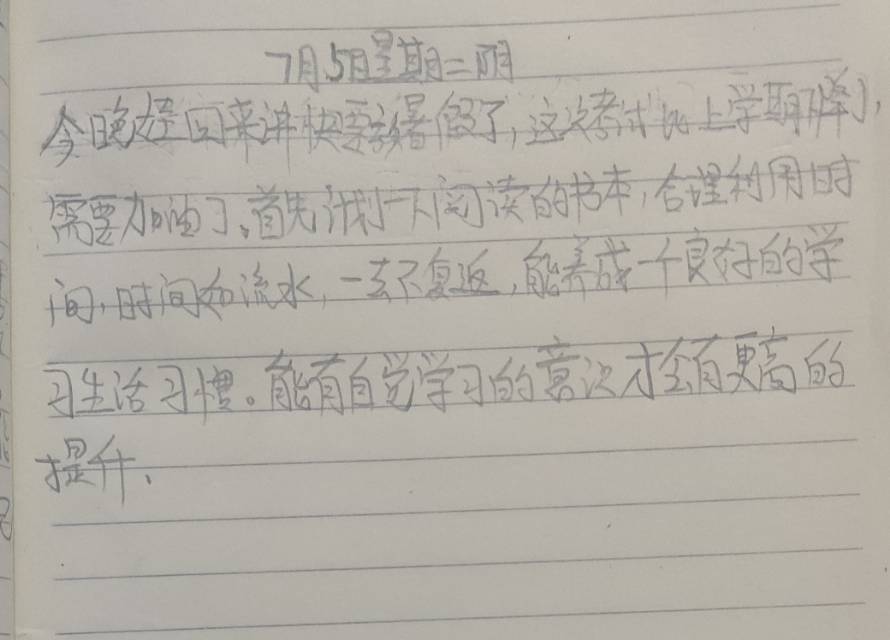 7月5日星期二阴
今晚娃回来讲快要放暑假了,这次考试比上学期下降了,
需要加油了。首先计划一下阅读的书本,合理利用时
间,时间如流水,一去不复返,能养成一个良好的学
习生活习惯。能有自觉学习的意识才会有更高的
提升、